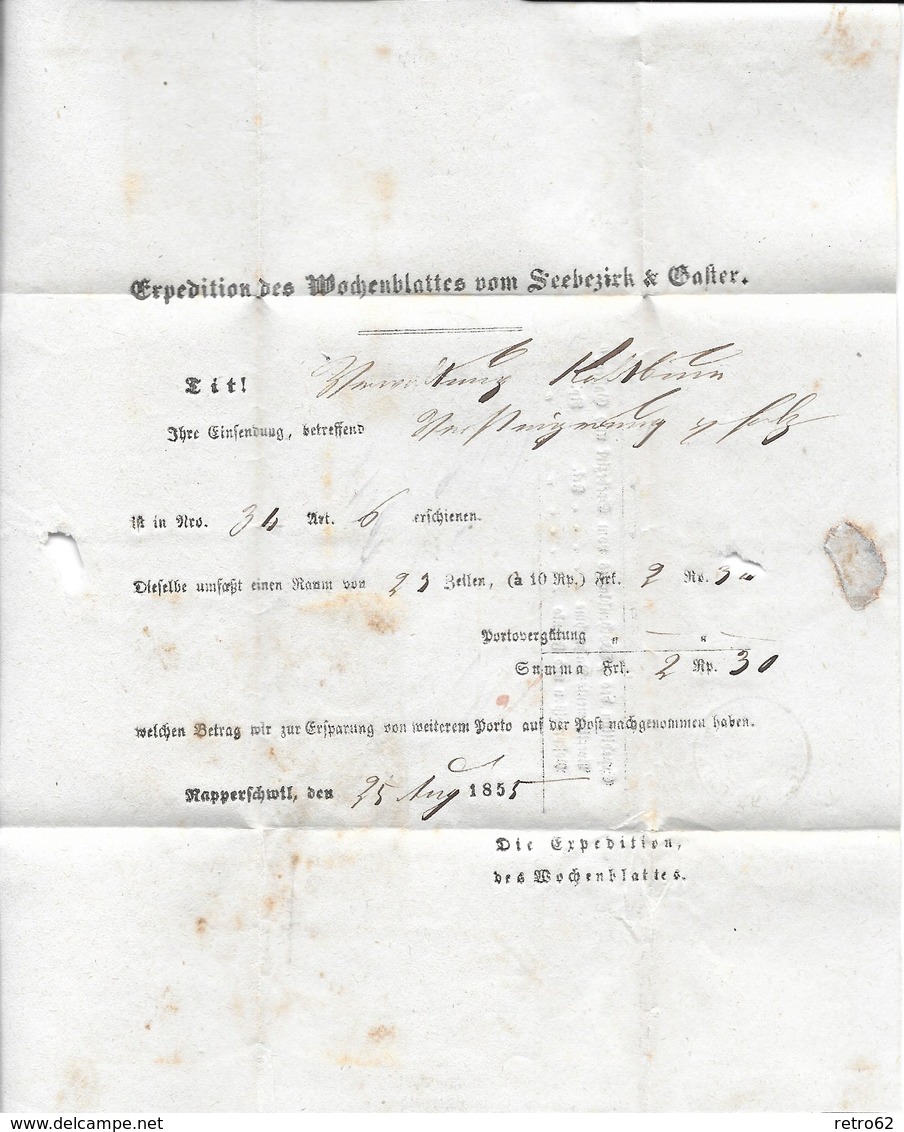 Expedition des Wochenblattes vom Seebezirk & Gaster.
Tit! Verwaltung Kaltbrun
Ihre Einsendung, betreffend Versteigerung v Holz
ist in Nro. 34 Art. 6 erschienen.
Dieselbe umfaßt einen Raum von 23 Zeilen, (à 10 Rp.) Frk. 2 Rp. 30
Portovergütung „ — „ —
Summa Frk. 2 Rp. 30
welchen Betrag wir zur Ersparung von weiterem Porto auf der Post nachgenommen haben.
Rapperschwil, den 25 Aug 1855
Die Expedition,
des Wochenblattes.
delcampe.net
retro62